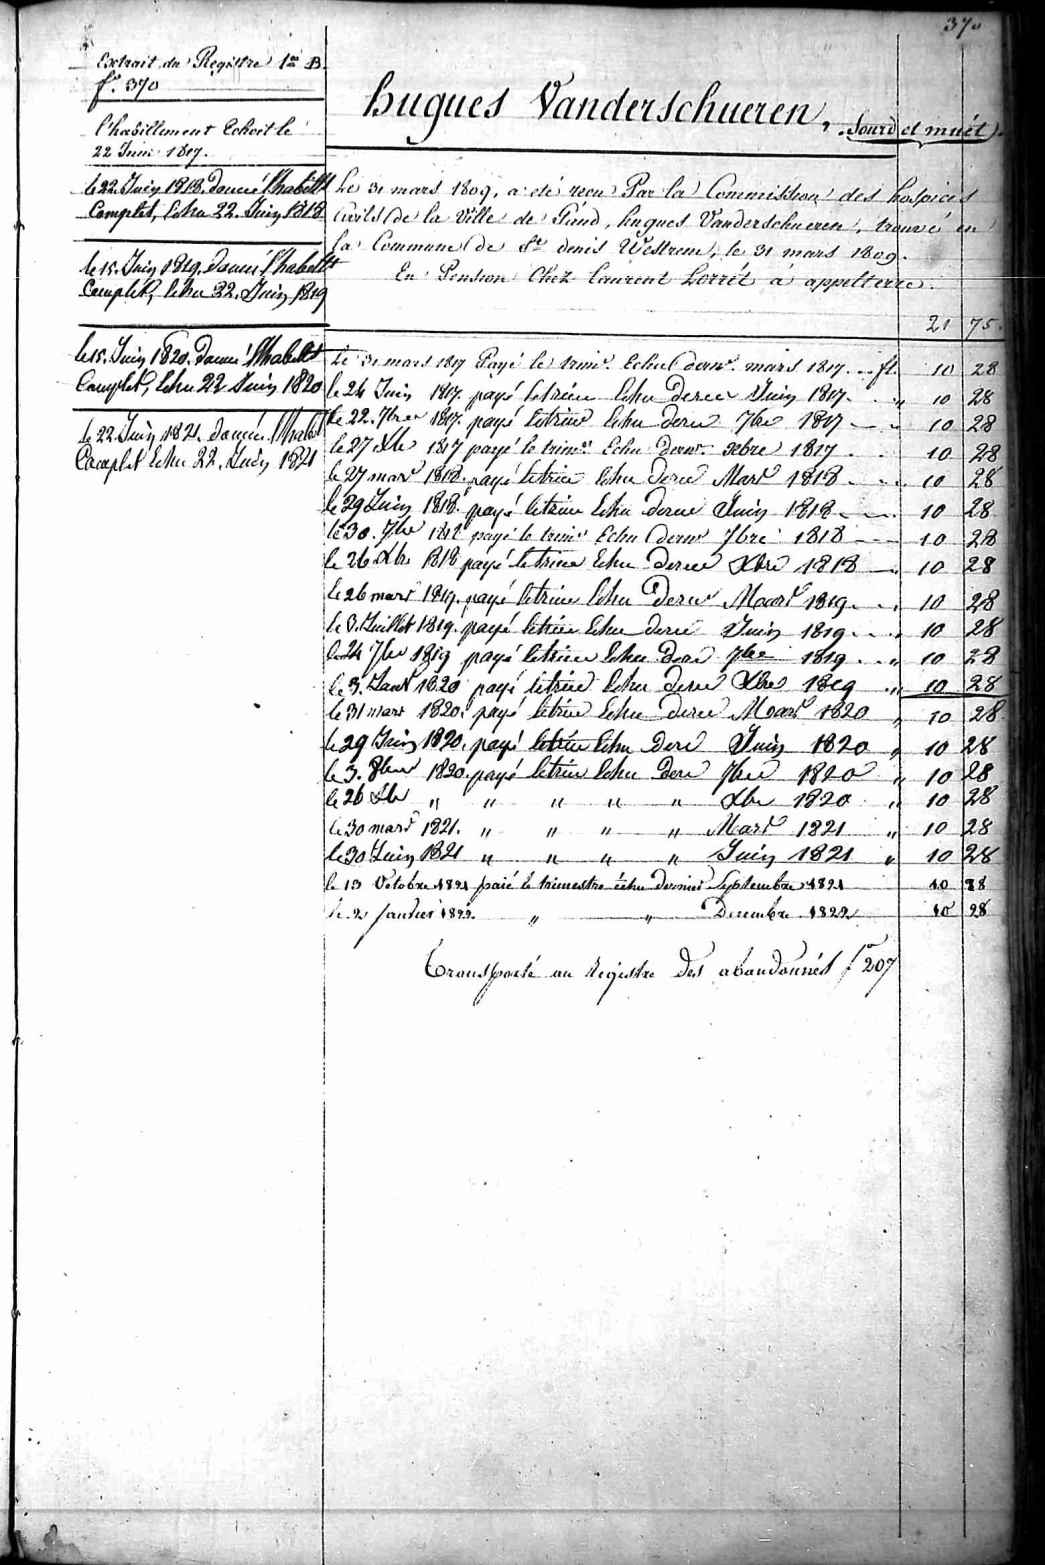 370
Extrait du Registre 1er B.
fo. 370
l'habillement Echoit le
22 Juin 1817.
le 22. Juin 1818. donné l'habillt
Complet, Echu 22. Juin 1818
le 15. Juin 1819. donné l'habillt
Complet, Echu 22. Juin 1819
le 15. Juin 1820. donné l'habillt
Complet, Echu 22 Juin 1820
le 22. Juin 1821. donné l'habill
Complet Echu 22. Juin 1821
hugues Vanderschueren, Sourd et muét.
Le 31 mars 1809, a été reçu Par la Commission des hospices
Civils de la Ville de Gand, hugues Vanderschueren, trouvé en
la Commune de St denis Westrem, le 31 mars 1809.
En Pension Chez laurent Lorrét à appelterre.
21 75.
Le 31 mars 1817 Payé le trimr. Echu dernr. mars 1817. fl. 10 28
le 24 Juin 1817. payé le trim Echu dern Juin 1817. „ 10 28
le 22. 7bre 1817. payé le trim Echu dern 7bre 1817 10 28
le 27 Xbr 1817 payé le trimr Echu dernr. xbre 1817 10 28
le 27 mars 1818. payé le trim Echu dern Mars 1818 10 28
le 29 Juin 1818. payé le trim Echu dern Juin 1818 10 28
le 30. 7br 1818 payé le trimr Echu dernr 7bre 1818 10 28
le 26 Xbr 1818 payé le trim Echu dern Xbre 1818 10 28
le 26 mars 1819. payé le trim Echu dern Mars 1819. 10 28
le 3. Juillet 1819. payé le trim Echu dern Juin 1819 „ 10 28
le 24 7br 1819 payé le trim Echu dern 7bre 1819 „ 10 28
le 3. Janr 1820 payé le trim Echu dern Xbre 1819 „ 10 28
le 31 mars 1820. payé le trim Echu dern Mars 1820 „ 10 28
le 29 Juin 1820. payé le trim Echu dern Juin 1820 „ 10 28
le 3. 8bre 1820. payé le trim Echu dern 7bre 1820 „ 10 28
le 26 Xbr „ „ „ „ „ Xbre 1820 „ 10 28
le 30 mars 1821. „ „ „ „ Mars 1821 „ 10 28
le 30 Juin 1821 „ „ „ „ Juin 1821 „ 10 28
le 13 Octobre 1821 paié le trimestre échu dernier Septembre 1821 10 28
le 2 Janvier 1822. „ „ Decembre 1822 10 28
Transporté au Registre des abandonnés fo 207